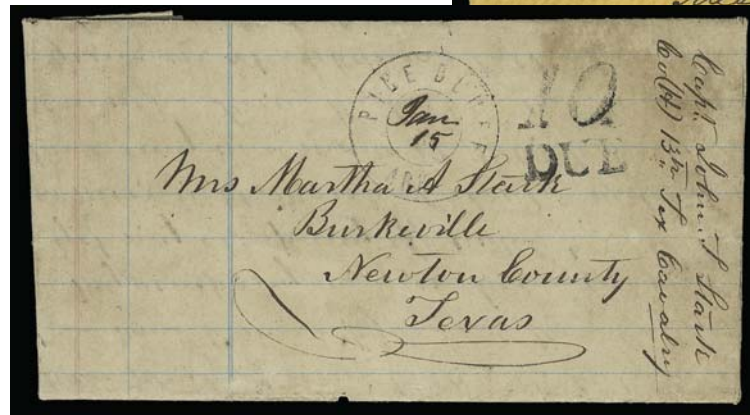 PINE BLUFF
Jan
15
ARK
10
DUE
Mrs Martha A Stark
Burkeville
Newton County
Texas
Capt. John T Stark
Co (H) 13th Tex Cavalry